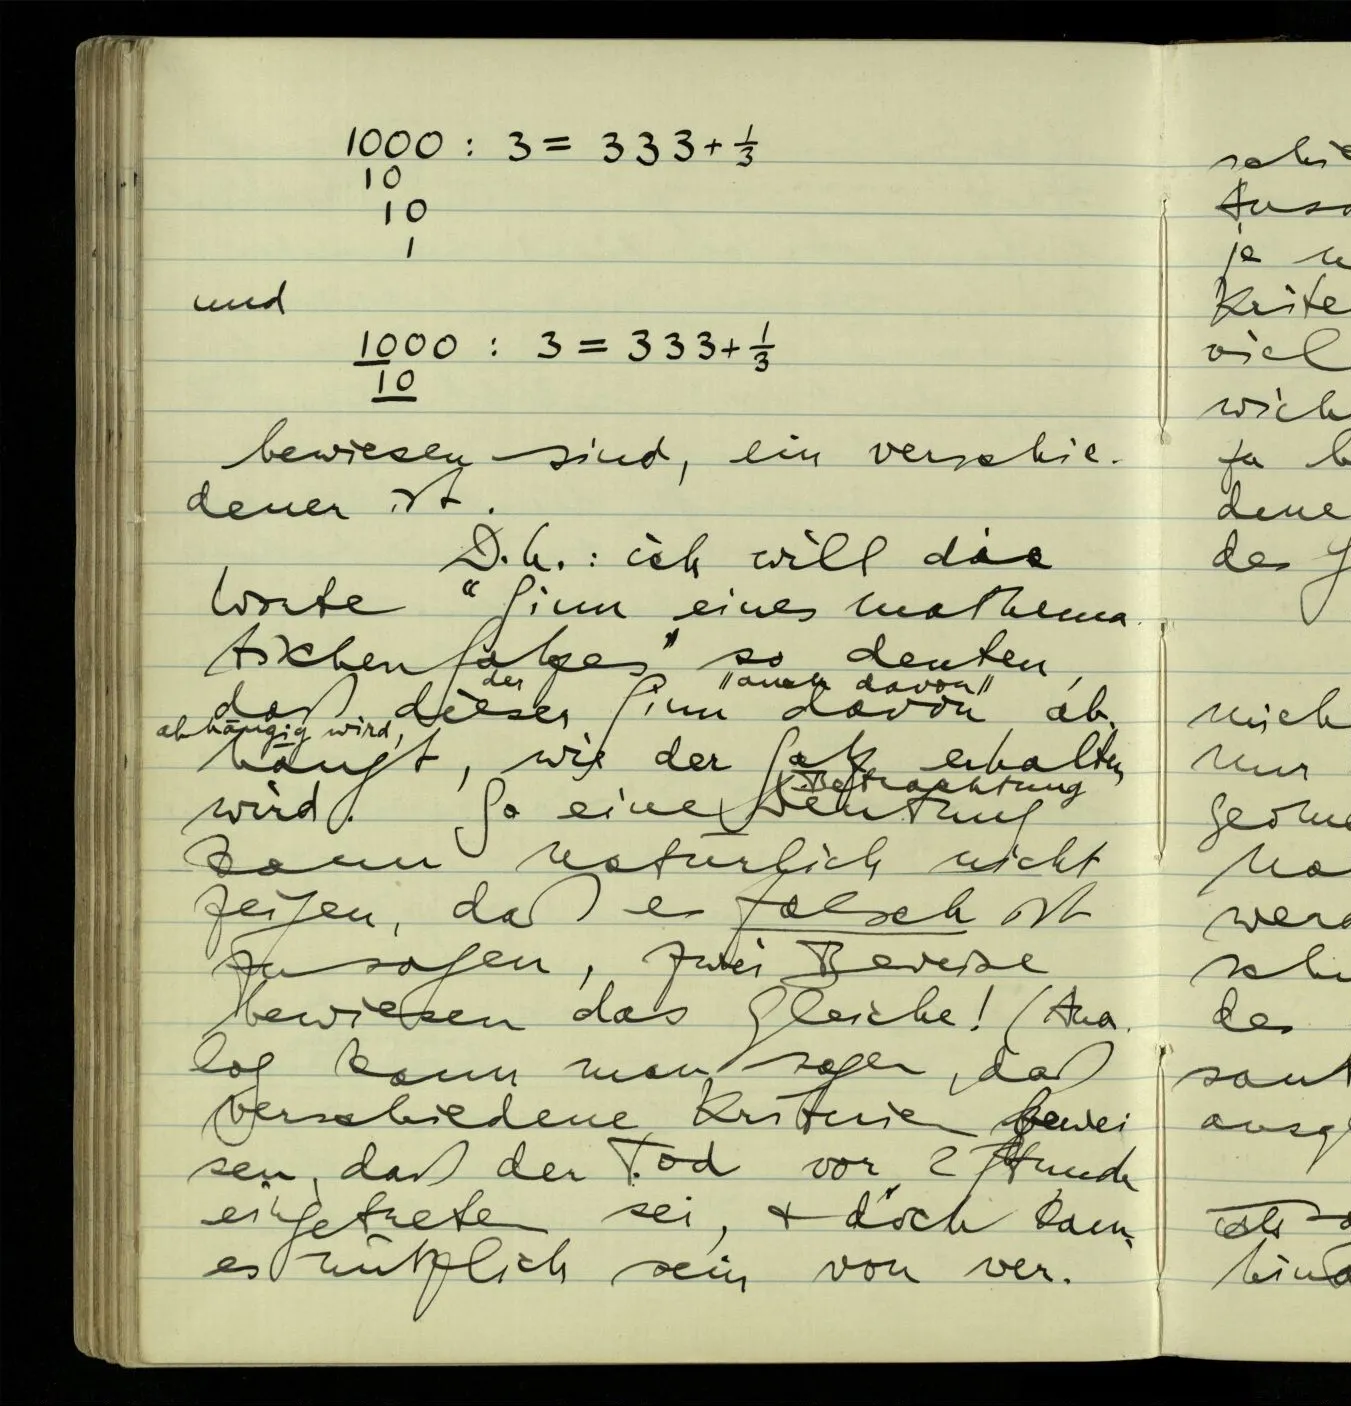 1000 : 3 = 333 + 1/3
10
10
1
und
1000 : 3 = 333 + 1/3
10
bewiesen sind, ein verschie-
dener ist.
D.h.: ich will die
Worte “Sinn eines mathema-
tischen Satzes” so deuten,
der "auch davon"
daß dieser Sinn davon ab-
abhängig wird,
hängt, wie der Satz erhalten
Betrachtung
wird. So eine Deutung
kann natürlich nicht
zeigen, daß es falsch ist
zu sagen, zwei Beweise
bewiesen das Gleiche! (Ana-
log kann man sagen, daß
verschiedene Kriterien bewei
sen, daß der Tod vor 2 Stunden
eingetreten sei, + doch kann
es nützlich sein von ver-
je
viel
des
mich
nur
des